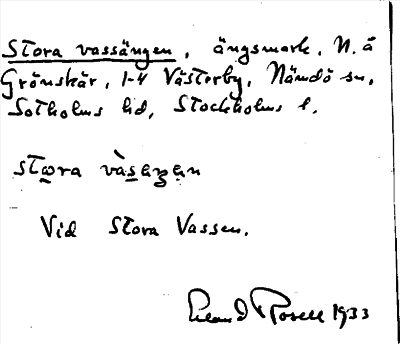 Stora vassängen, ängsmark, N. å
Grönskär, 1-4 Västerby, Nämdö sn,
Sotholms hd, Stockholms l.
Vid Stora Vassen.
Rosell 1933